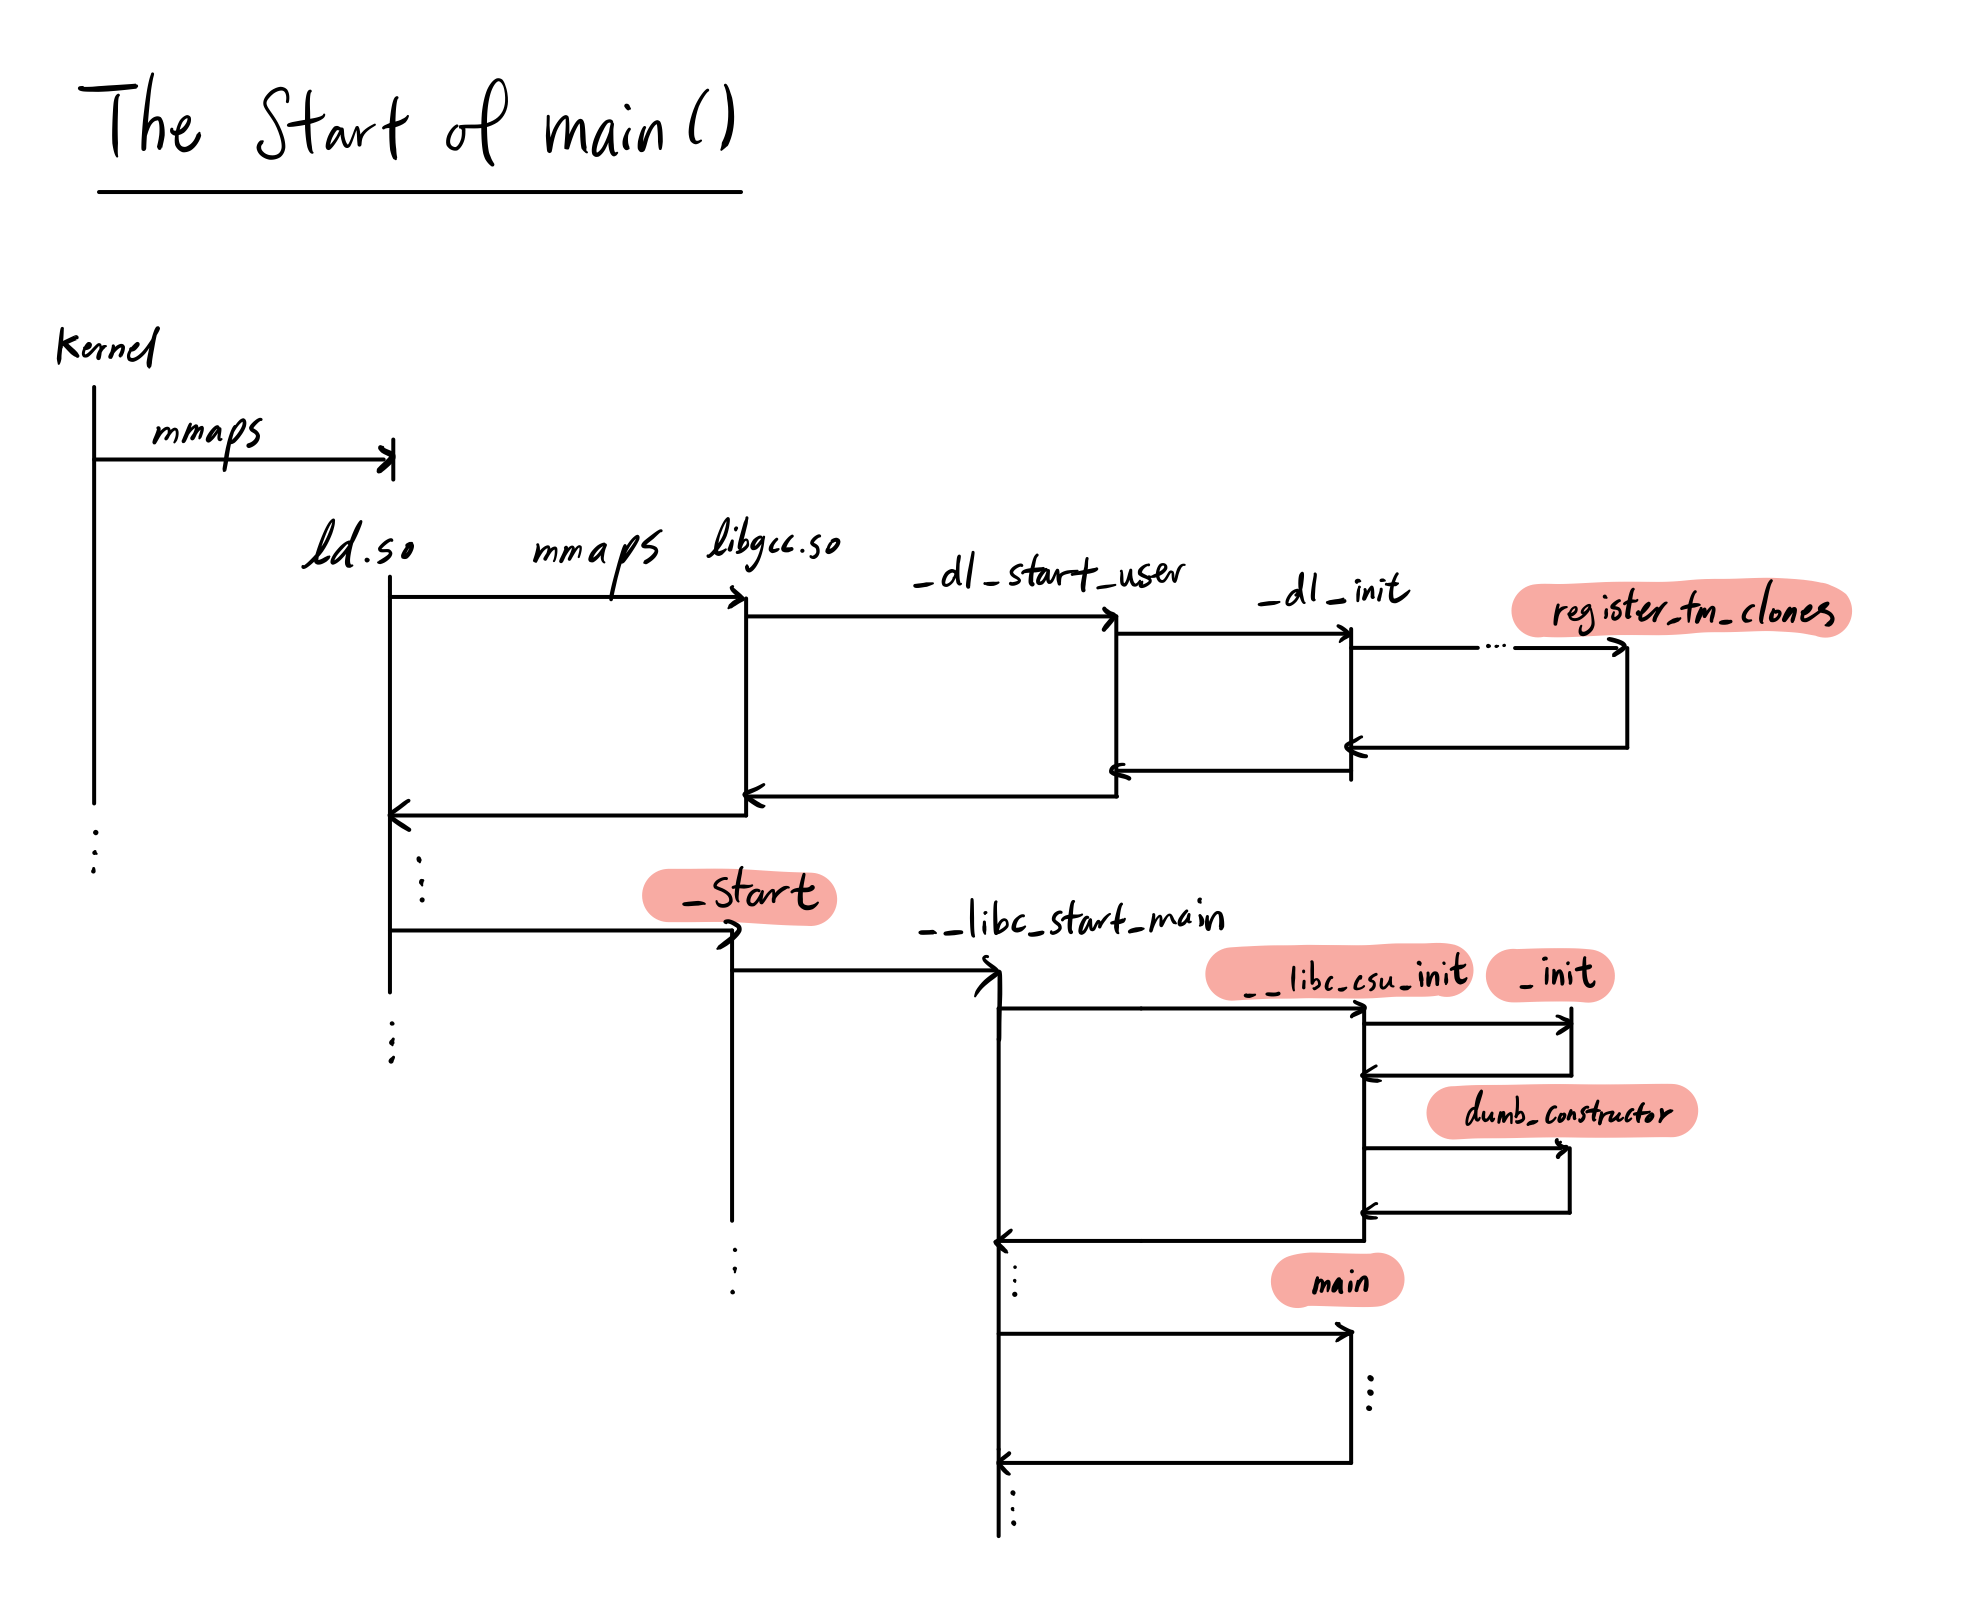 The Start of main()
Kernel
mmaps
ld.so
mmaps
libgcc.so
_dl_start_user
_dl_init
register_tm_clones
...
_start
__libc_start_main
__libc_csu_init
_init
dumb_constructor
main